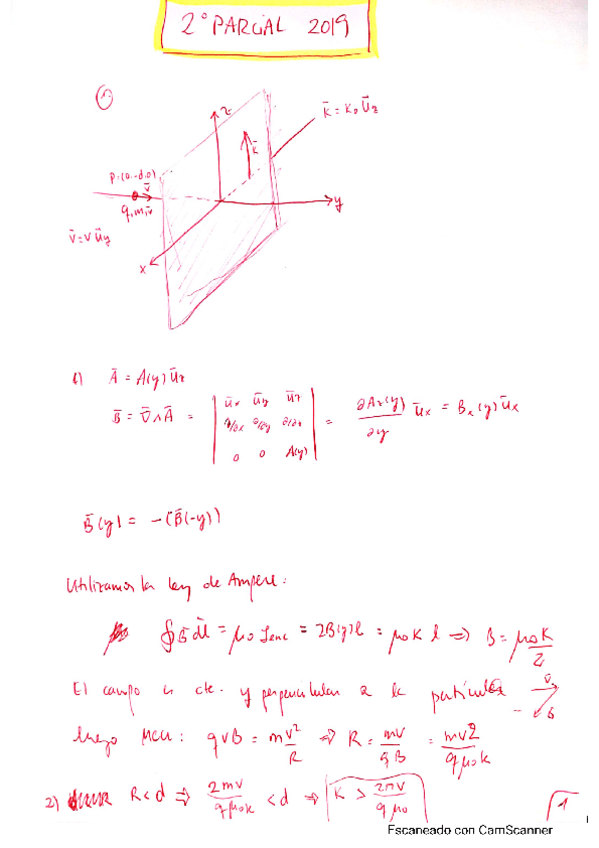 2º PARCIAL 2019
①
z
k̄ = k₀ ūz
k̄
P=(0,-d,0)
v̄
q,m,v̄
y
v̄=v ūy
x
1) Ā = A(y) ūz
B̄ = ∇̄∧Ā = | ūx ūy ūz | = ∂Az(y)/∂y ūx = Bx(y) ūx
| ∂/∂x ∂/∂y ∂/∂z |
| 0 0 A(y) |
B̄(y) = -(B̄(-y))
Utilizamos la ley de Ampere:
∮B̄ dl̄ = μ₀ Ienc = 2B(y)l = μ₀ k l ⇒ B = μ₀k/2
El campo es cte. y perpendicular a la partícula
luego MCU: qvB = m v²/R ⇒ R = mv/qB = mv2/qμ₀k
2) R<d ⇒ 2mv/qμ₀k < d ⇒ k > 2mv/qμ₀
1
Escaneado con CamScanner